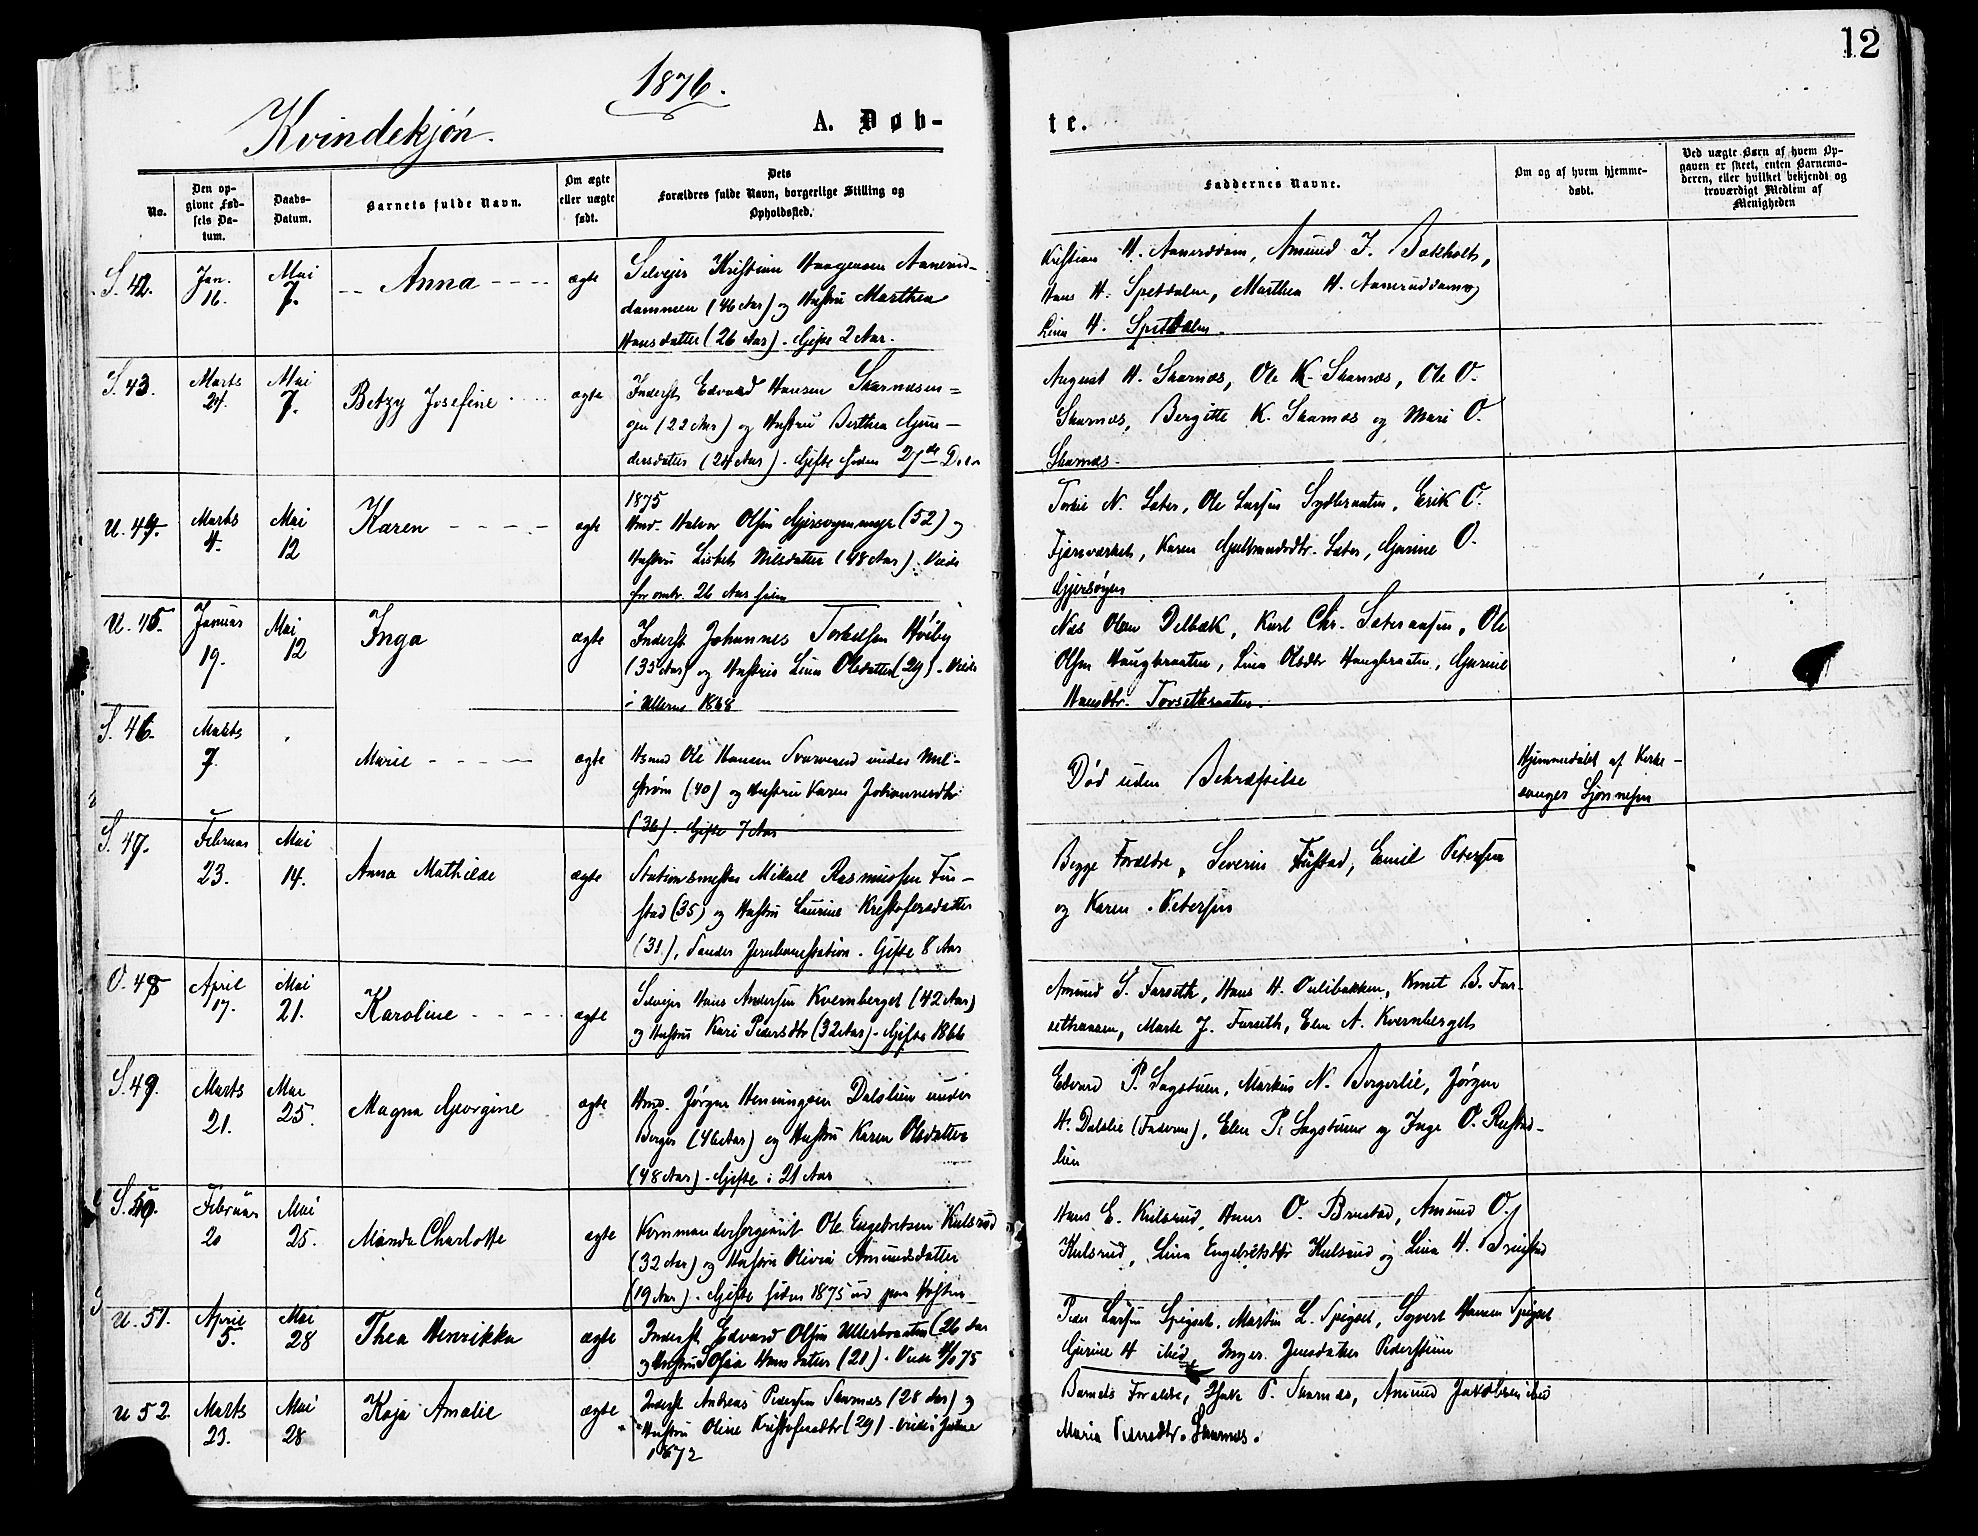 12
1876.
Kvindekjøn.
A. Døb-
te.
No.
Den op-
givne Fød-
sels Da-
tum.
Daabs-
Datum.
Barnets fulde Navn.
Om ægte
eller uægte
født.
Dets
Forældres fulde Navn, borgerlige Stilling og
Opholdssted.
Faddernes Navne.
Om og af hvem hjemme-
døbt.
Ved uægte Børn af hvem Op-
gaven er skeet, enten Barnemo-
deren, eller hvilket bekjendt og
troværdigt Medlem af
Menigheden
S. 42.
Jan.
16.
Mai
7.
Anna
ægte
Selveier Kristian Haagensen Aanerud-
dammen (46 Aar) og Hustru Marthea
Hansdatter (26 Aar). Gifte 2 Aar.
Kristian H. Aaneruddam, Amund J. Bakholt,
Hans H. Spetalen, Marthea H. Aaneruddam og
Lina H. Spetalen.
S. 43.
Marts
24.
Mai
7.
Betzy Josefine
ægte
Inderst Edvard Hansen Skarnæsen-
gen (22 Aar) og Hustru Berthea Gun-
dersdatter (24 Aar). Gifte siden 27de Decbr
1875
August H. Skarnæs, Ole K. Skarnæs, Ole O.
Skarnæs, Bergitte K. Skarnæs og Mari O.
Skarnæs.
U. 44.
Marts
4.
Mai
12
Karen
ægte
Hmd. Halvor Olsen (52) og
Hustru Lisbet Nilsdatter (48 Aar). Viede
for omtr. 26 Aar siden
N. Sæter, Ole Larsen Sydbraaten, Erik O.
Karen Gulbrandsdtr. Sæter, Gurine O.
Gjersøyen
U. 45.
Januar
19.
Mai
12
Inga
ægte
Inderst Johannes Torkelsen Høiby
(35 Aar) og Hustru Lina Olsdatter (29). Viede
i Ullern 1868
Nils Olsen Delbæk, Karl Chr. Sæteraasen, Ole
Olsen Haugbraaten, Lina Olsdtr Haugbraaten, Gurine
Hansdtr. Torsetbraaten.
S. 46.
Marts
7.
Marie
ægte
Hsmd Ole Hansen under Mel-
strøm (40) og Hustru Karen Johannesdtr
(36). Gifte 7 Aar
Død uden Bekræftelse
Hjemmedøbt af Kirke-
sanger Sjønnesen
S. 47.
Februar
23.
Mai
14.
Anna Mathilde
ægte
Stationsmester Mikael Rasmussen Fin-
stad (35) og Hustru Laurine Kristofersdatter
(31), Sander Jernbanestation. Gifte 8 Aar
Begge Forældre, Severin Finstad, Emil Petersen
og Karen Petersen
O. 48
April
17.
Mai
21.
Karoline
ægte
Selveier Hans Andersen Kvernberget (42 Aar)
og Hustru Kari Pedersdtr (32 Aar). Gifte 1866
Amund G. Farseth, Hans H. Oulibakken, Knut B. Far-
sethaasen, Marte J. Farseth, Elen A. Kvernberget
S. 49.
Marts
21.
Mai
25.
Magna Georgine
ægte
Hmd. Jørgen Henningsen Dalslien under
Berger (46 Aar) og Hustru Karen Olsdatter
(48 Aar). Gifte i 21 Aar
Edvard P. Sagstuen, Markus N. Bergerlie, Jørgen
H. Dalslie (Faderen), Elen P. Sagstuen og Inge O. Rustad-
lien
S. 50.
Februar
20
Mai
25.
Manda Charlotte
ægte
Kommandersergeant Ole Engebretsen Kulsrud
(32 Aar) og Hustru Olivia Amundsdatter
(19 Aar). Gifte siden 1875 ud paa Høsten
Hans E. Kulsrud, Hans O. Brustad, Amund O.
Kulsrud, Lina Engebretsdtr Kulsrud og Lina H. Brustad
U. 51.
April
5.
Mai
28
Thea Henrikka
ægte
Inderst Edvard Olsen Ullersbraaten (26 Aar
og Hustru Sofia Hansdatter (21). Viede 75
Peder Larsen Spigset, Martin L. Spigset, Syvert Hansen Spigset
Gurine H ibid, Inger Jensdatter Pedersstuen
U 52.
Marts
23.
Mai
28
Kaja Amalie
ægte
Inderst Andreas Pedersen Skarnæs (28 Aar) og
Hustru Oline Kristofersdtr (29). Viede i
1872
Barnets Forældre, P. Skarnæs, Amund Jakobsen ibid
Maria Pedersdtr. Skarnæs.